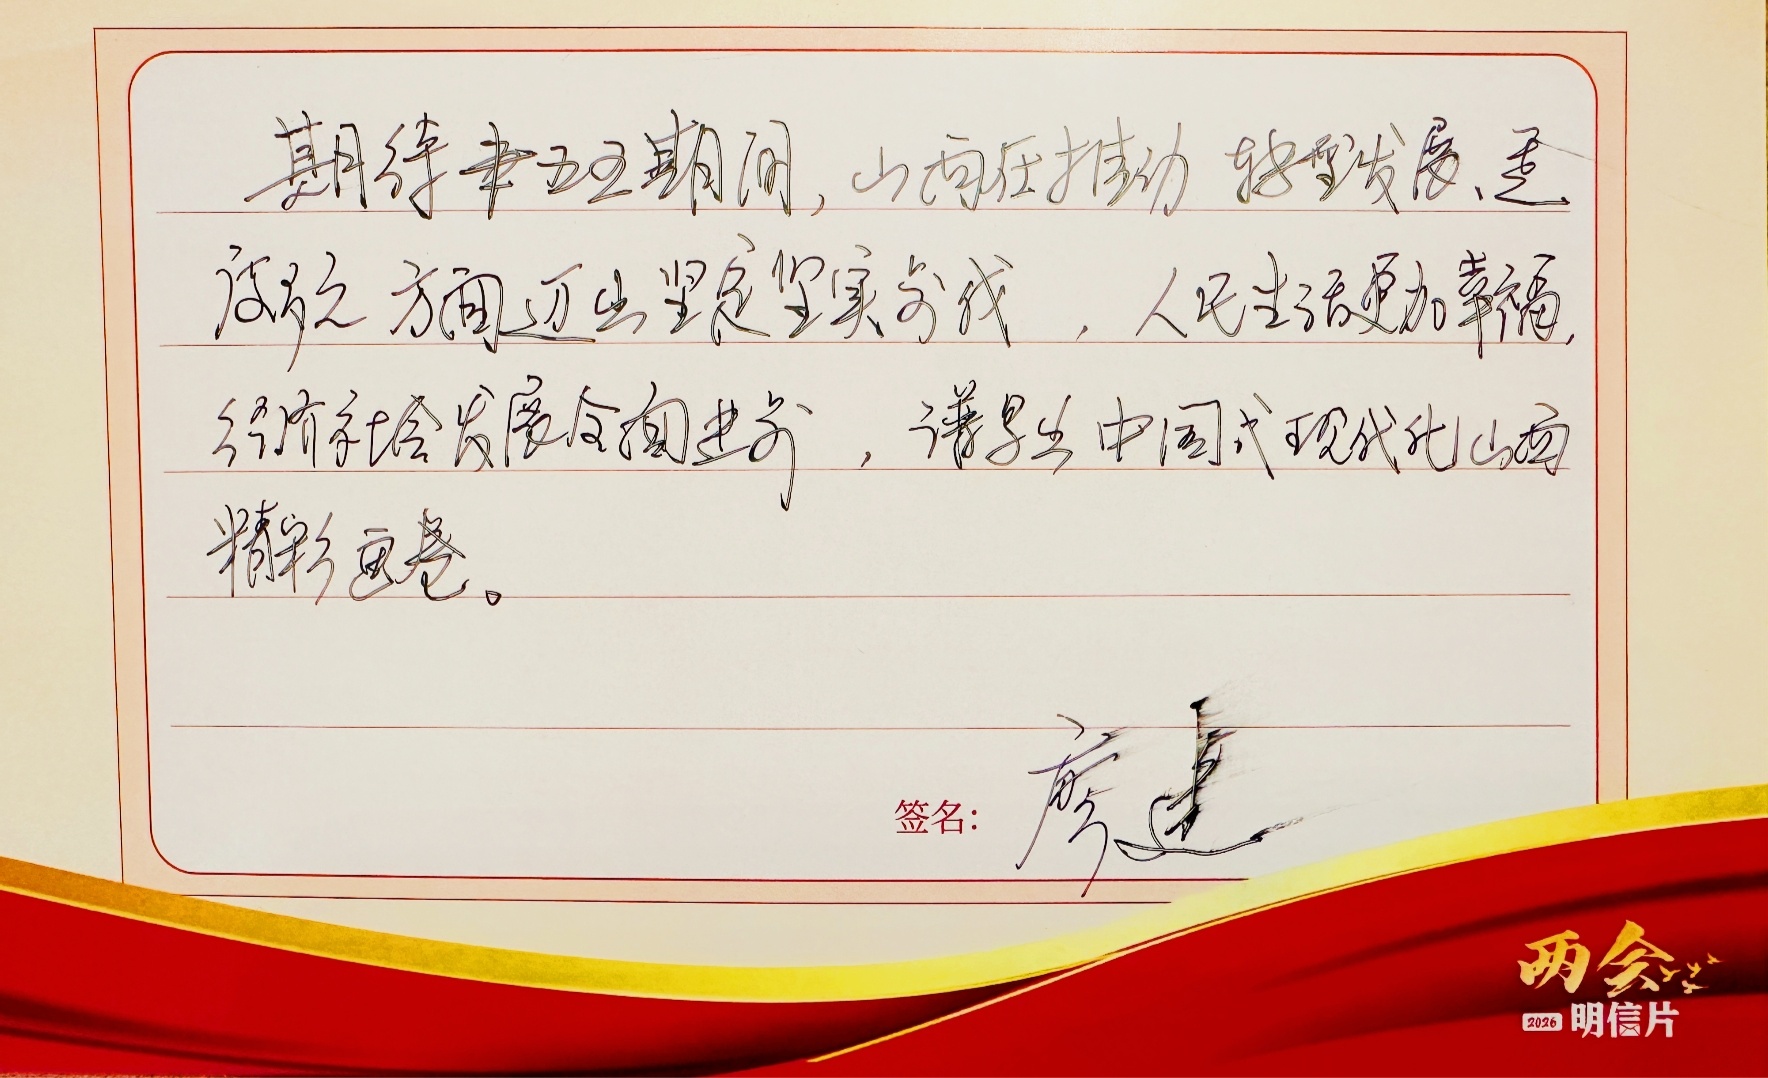 期待十五五期间，山西在推动转型发展、
方面迈出坚定坚实步伐，人民生活更加幸福，
经济社会发展全面进步，谱写出中国式现代化山西
精彩画卷。
签名：
两会
2026 明信片